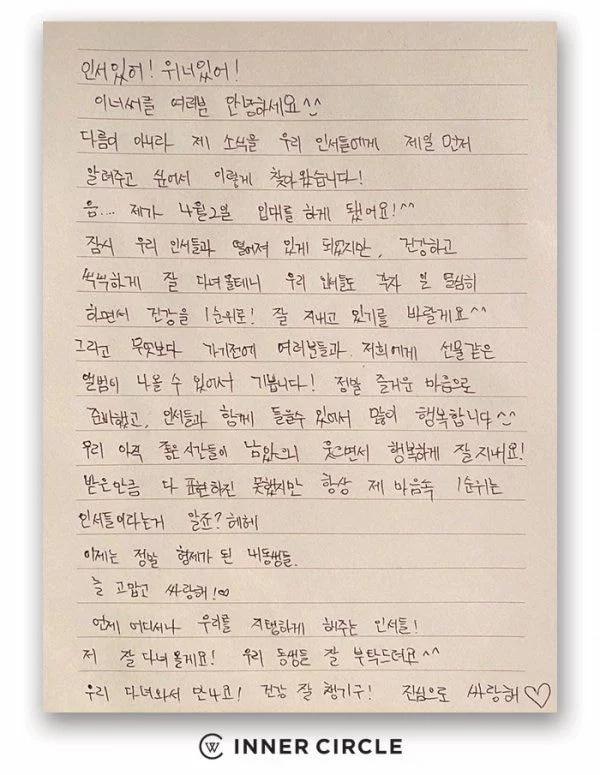 인서있어! 위너있어!
이너써클 여러분 안녕하세요^^
다름이 아니라 제 소식을 우리 인서들에게 제일 먼저
알려주고 싶어서 이렇게 찾아왔습니다!
음.... 제가 4월2일 입대를 하게 됐어요!^^
잠시 우리 인서들과 떨어져 있게 되었지만, 건강하고
씩씩하게 잘 다녀올테니 우리 인서들도 각자 일 열심히
하면서 건강을 1순위로! 잘 지내고 있기를 바랄게요^^
그리고 무엇보다 가기전에 여러분들과 저희에게 선물같은
앨범이 나올 수 있어서 기쁩니다! 정말 즐거운 마음으로
준비했고, 인서들과 함께 들을수 있어서 많이 행복합니다^^
우리 아직 좋은 시간들이 남았으니 웃으면서 행복하게 잘지내요!
받은만큼 다 표현하진 못했지만 항상 제 마음속 1순위는
인서들이라는거 알죠? 헤헤
이제는 정말 형제가 된 내동생들.
늘 고맙고 싸랑해!∞
언제 어디서나 우리를 지탱하게 해주는 인서들!
저 잘다녀올게요! 우리 동생들 잘 부탁드려요^^
우리 다녀와서 만나요! 건강 잘 챙기구! 진심으로 싸랑해♡
INNER CIRCLE